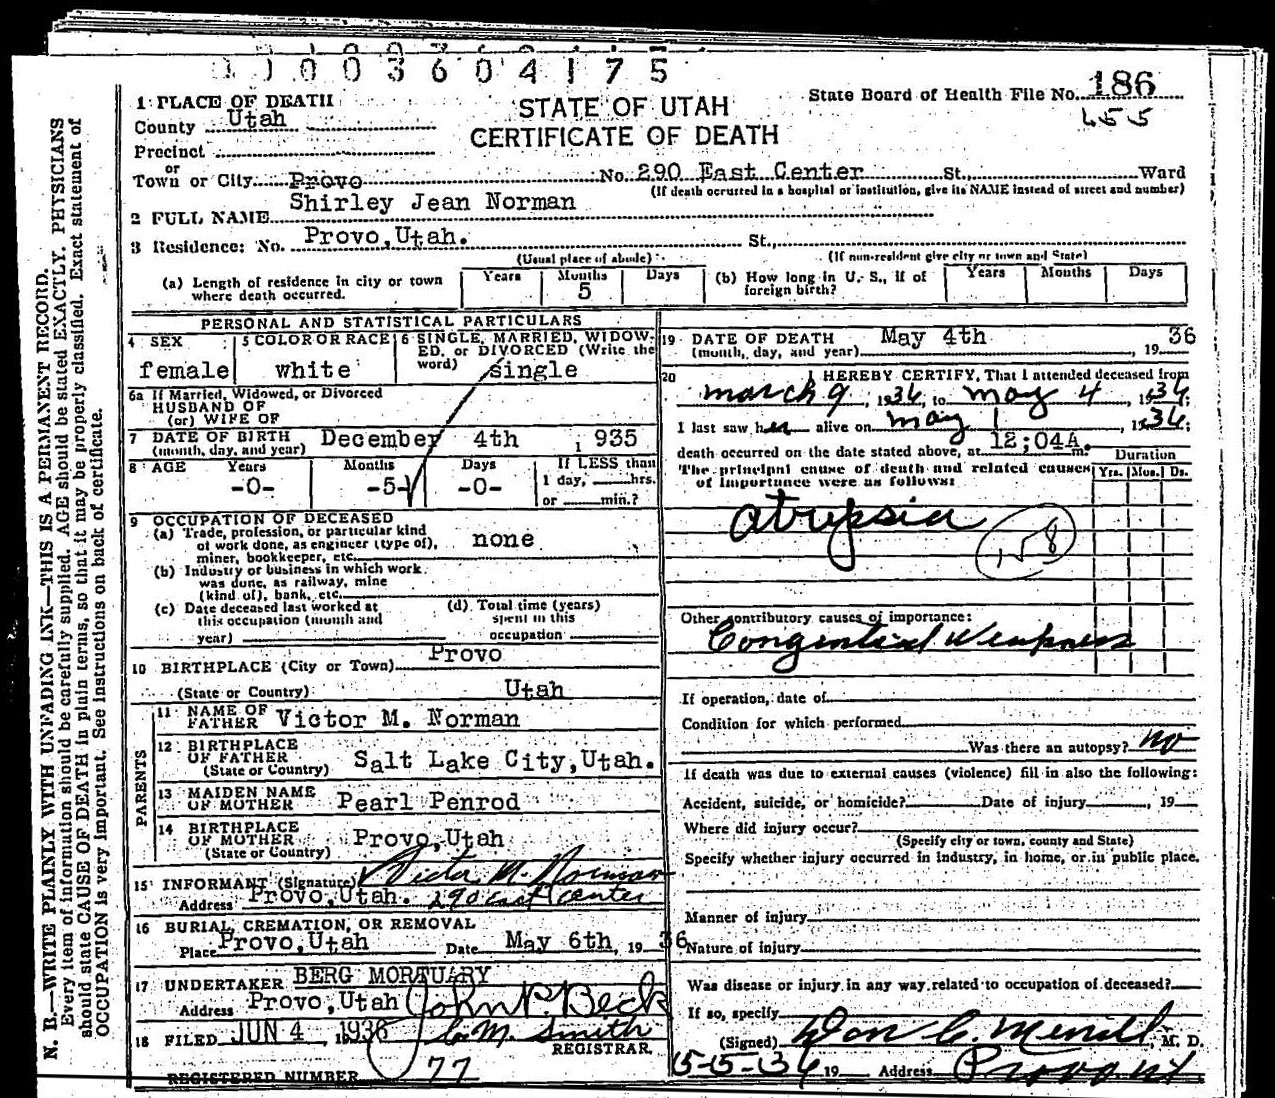 01003604175
1 PLACE OF DEATH
County Utah
Precinct
or
Town or City Provo No. 290 East Center St., Ward
STATE OF UTAH
CERTIFICATE OF DEATH
State Board of Health File No. 186
655
(If death occurred in a hospital or institution, give its NAME instead of street and number)
2 FULL NAME Shirley Jean Norman
3 Residence: No. Provo,Utah. St.,
(Usual place of abode) (If non-resident give city or town and State)
(a) Length of residence in city or town where death occurred. Years Months 5 Days
(b) How long in U. S., if of foreign birth? Years Months Days
PERSONAL AND STATISTICAL PARTICULARS
4 SEX female
5 COLOR OR RACE white
6 SINGLE, MARRIED, WIDOWED, or DIVORCED (Write the word) single
6a If Married, Widowed, or Divorced
HUSBAND OF
(or) WIFE OF
7 DATE OF BIRTH December 4th 1935
(month, day, and year)
8 AGE Years -0- Months -5- Days -0- If LESS than 1 day, hrs. or min.?
9 OCCUPATION OF DECEASED
(a) Trade, profession, or particular kind of work done, as engineer (type of), miner, bookkeeper, etc. none
(b) Industry or business in which work was done, as railway, mine (kind of), bank, etc.
(c) Date deceased last worked at this occupation (month and year)
(d) Total time (years) spent in this occupation
10 BIRTHPLACE (City or Town) Provo
(State or Country) Utah
PARENTS
11 NAME OF FATHER Victor M. Norman
12 BIRTHPLACE OF FATHER Salt Lake City,Utah.
(State or Country)
13 MAIDEN NAME OF MOTHER Pearl Penrod
14 BIRTHPLACE OF MOTHER Provo,Utah
(State or Country)
15 INFORMANT (Signature) Victor M. Norman
Address Provo,Utah. 290 east center
16 BURIAL, CREMATION, OR REMOVAL
Place Provo,Utah Date May 6th, 19 36
17 UNDERTAKER BERG MORTUARY
Address Provo,Utah John P. Beck
18 FILED JUN 4 1936 C. M. Smith
REGISTRAR.
REGISTERED NUMBER 77
19 DATE OF DEATH May 4th, 19 36
(month, day, and year)
20 I HEREBY CERTIFY, That I attended deceased from
march 9, 1936, to may 4, 1936;
I last saw her alive on may 1, 1936;
death occurred on the date stated above, at 12;04A. m.
The principal cause of death and related causes of importance were as follows:
Duration
Yrs. Mos. Ds.
atrepsia
158
Other contributory causes of importance:
Congenital Weakness
If operation, date of
Condition for which performed
Was there an autopsy? no
If death was due to external causes (violence) fill in also the following:
Accident, suicide, or homicide? Date of injury , 19
Where did injury occur?
(Specify city or town, county and State)
Specify whether injury occurred in industry, in home, or in public place.
Manner of injury
Nature of injury
Was disease or injury in any way related to occupation of deceased?
If so, specify
(Signed) Don C. Merrill, M. D.
5-5-36 19 Address Provo Ut
N. B.—WRITE PLAINLY WITH UNFADING INK—THIS IS A PERMANENT RECORD.
Every item of information should be carefully supplied. AGE should be stated EXACTLY. PHYSICIANS
should state CAUSE OF DEATH in plain terms, so that it may be properly classified. Exact statement of
OCCUPATION is very important. See instructions on back of certificate.